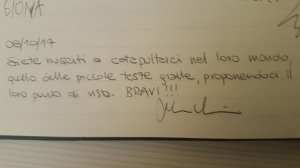 SIONA
06/10/17
Siete riusciti a catapultarci nel loro mondo,
quello delle piccole teste gialle, proponendoci il
loro punto di vista. BRAVI!!!